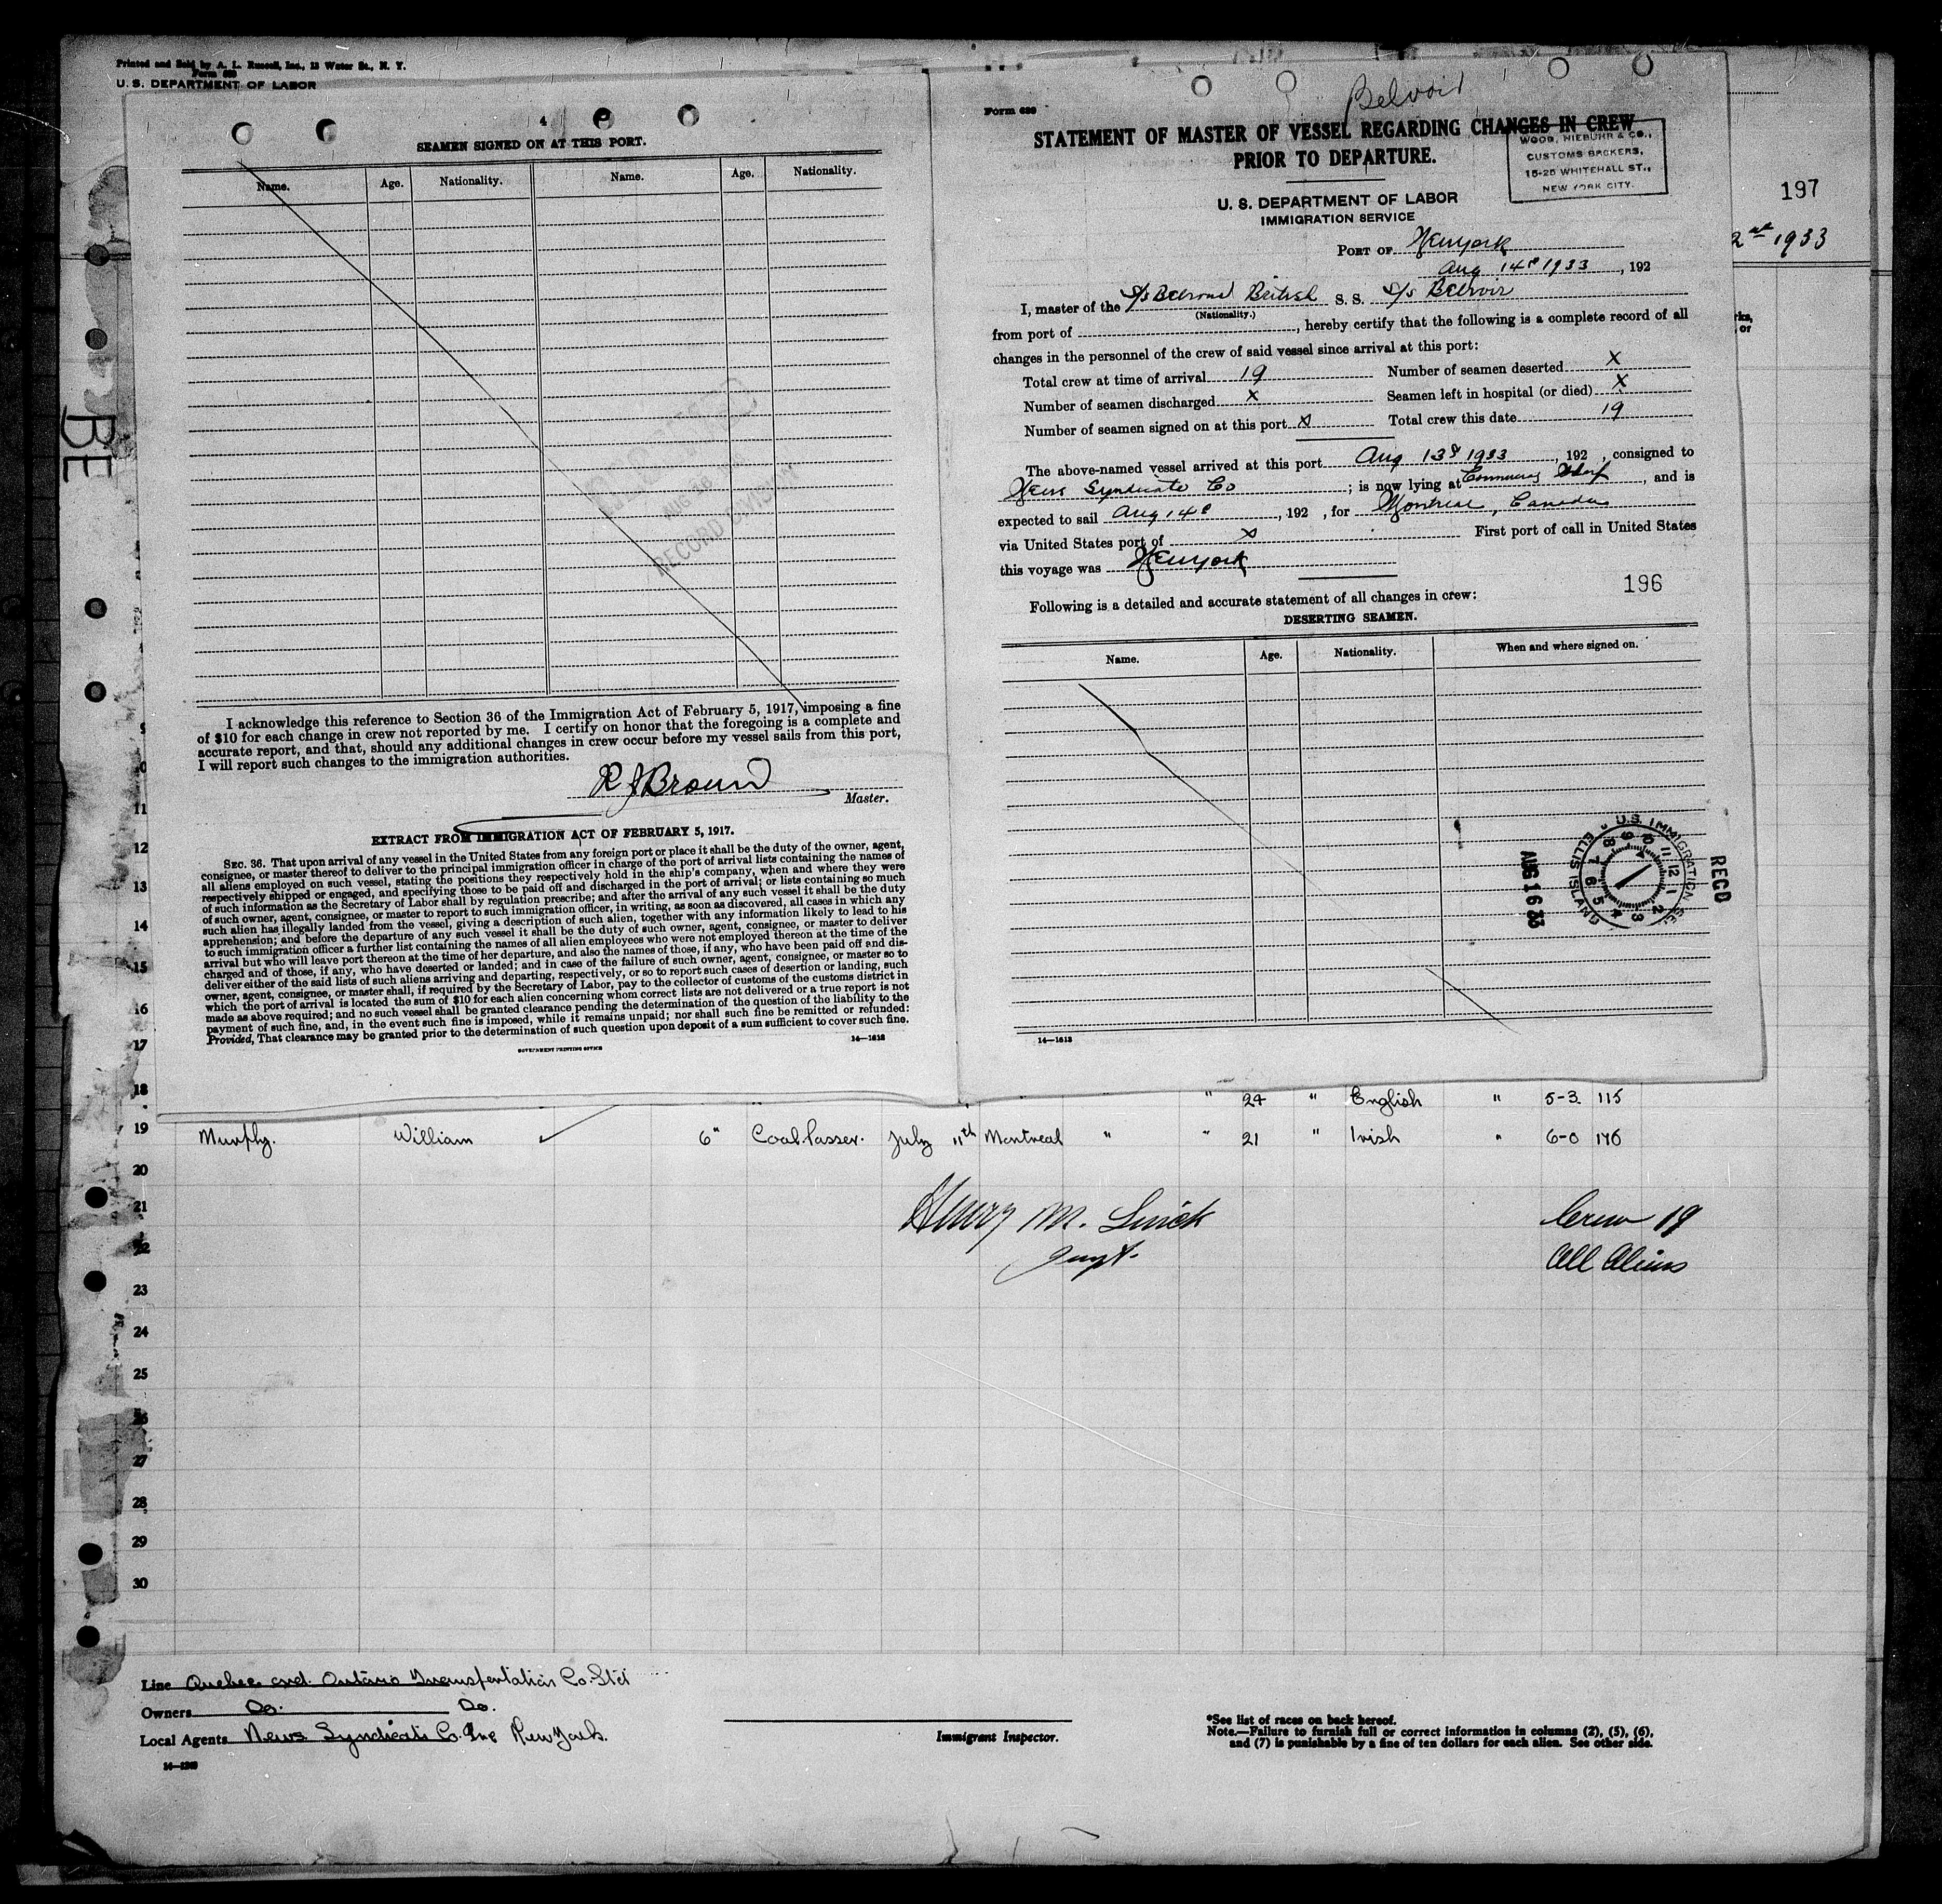 Printed and Sold by A. L. Russell, Inc., 13 Water St., N. Y.
Form 689
U. S. DEPARTMENT OF LABOR
4
SEAMEN SIGNED ON AT THIS PORT.
Name. Age. Nationality. Name. Age. Nationality.
AUG 16
RECORD DIVISION
I acknowledge this reference to Section 36 of the Immigration Act of February 5, 1917, imposing a fine
of $10 for each change in crew not reported by me. I certify on honor that the foregoing is a complete and
accurate report, and that, should any additional changes in crew occur before my vessel sails from this port,
I will report such changes to the immigration authorities.
R J Brown
Master.
EXTRACT FROM IMMIGRATION ACT OF FEBRUARY 5, 1917.
SEC. 36. That upon arrival of any vessel in the United States from any foreign port or place it shall be the duty of the owner, agent,
consignee, or master thereof to deliver to the principal immigration officer in charge of the port of arrival lists containing the names of
all aliens employed on such vessel, stating the positions they respectively hold in the ship's company, when and where they were
respectively shipped or engaged, and specifying those to be paid off and discharged in the port of arrival; or lists containing so much
of such information as the Secretary of Labor shall by regulation prescribe; and after the arrival of any such vessel it shall be the duty
of such owner, agent, consignee, or master to report to such immigration officer, in writing, as soon as discovered, all cases in which any
such alien has illegally landed from the vessel, giving a description of such alien, together with any information likely to lead to his
apprehension; and before the departure of any such vessel it shall be the duty of such owner, agent, consignee, or master to deliver
to such immigration officer a further list containing the names of all alien employees who were not employed thereon at the time of the
arrival but who will leave port thereon at the time of her departure, and also the names of those, if any, who have been paid off and dis-
charged and of those, if any, who have deserted or landed; and in case of the failure of such owner, agent, consignee, or master so to
deliver either of the said lists of such aliens arriving and departing, respectively, or so to report such cases of desertion or landing, such
owner, agent, consignee, or master shall, if required by the Secretary of Labor, pay to the collector of customs of the customs district in
which the port of arrival is located the sum of $10 for each alien concerning whom correct lists are not delivered or a true report is not
made as above required; and no such vessel shall be granted clearance pending the determination of the question of the liability to the
payment of such fine, and, in the event such fine is imposed, while it remains unpaid; nor shall such fine be remitted or refunded:
Provided, That clearance may be granted prior to the determination of such question upon deposit of a sum sufficient to cover such fine.
GOVERNMENT PRINTING OFFICE
14—1613
Belvoir
Form 689
STATEMENT OF MASTER OF VESSEL REGARDING CHANGES IN CREW
PRIOR TO DEPARTURE.
WOOD, NIEBUHR & CO.,
CUSTOMS BROKERS,
15-25 WHITEHALL ST.,
NEW YORK CITY.
U. S. DEPARTMENT OF LABOR
IMMIGRATION SERVICE
PORT OF New York
Aug 14 1933, 192
I, master of the British S. S. S/s Belvoir
(Nationality.)
from port of , hereby certify that the following is a complete record of all
changes in the personnel of the crew of said vessel since arrival at this port:
Total crew at time of arrival 19 Number of seamen deserted X
Number of seamen discharged X Seamen left in hospital (or died) X
Number of seamen signed on at this port X Total crew this date 19
The above-named vessel arrived at this port Aug 13 1933, 192 , consigned to
News Syndicate Co ; is now lying at Wharf , and is
expected to sail Aug 14 , 192 , for Montreal, Canada
via United States port of X First port of call in United States
this voyage was New York
196
Following is a detailed and accurate statement of all changes in crew:
DESERTING SEAMEN.
Name. Age. Nationality. When and where signed on.
RECD
U.S. IMMIGRATION SER
ELLIS ISLAND
12 1 2 3 4 5 6 7 8 9 10 11
AUG 16 33
14—1613
197
2nd 1933
rks,
or
BE
9
0
11
12
13
14
15
16
17
18 " 24 " English " 5-3 115
19 Murphy. William 6" Coal Passer. July 11th Montreal " " 21 " Irish " 6-0 176
20
21
22
23
24
25
26
27
28
29
30
Henry M. Linick
Crew 19
All Aliens
Line Quebec and Ontario Transportation Co. Ltd
Owners Do. Do.
Local Agents News Syndicate Co. Inc New York.
Immigrant Inspector.
*See list of races on back hereof.
Note.—Failure to furnish full or correct information in columns (2), (5), (6),
and (7) is punishable by a fine of ten dollars for each alien. See other side.